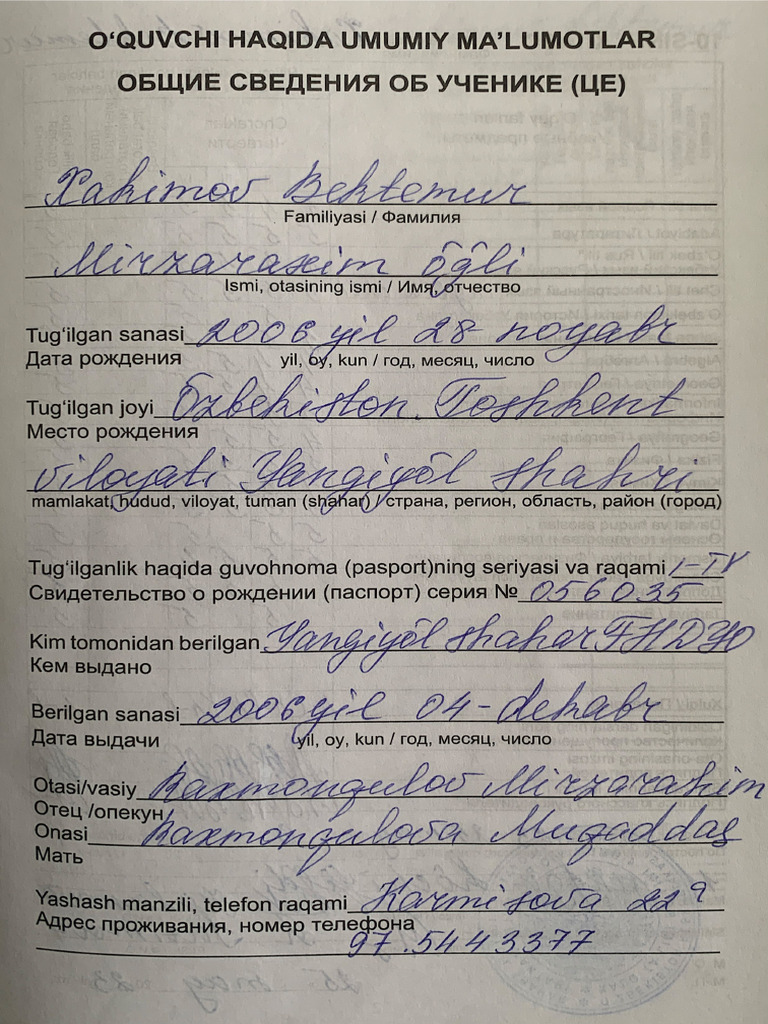 O‘QUVCHI HAQIDA UMUMIY MA’LUMOTLAR
ОБЩИЕ СВЕДЕНИЯ ОБ УЧЕНИКЕ (ЦЕ)
Xakimov Bektemur
Familiyasi / Фамилия
Mirzaraxim o‘g‘li
Ismi, otasining ismi / Имя, отчество
Tug‘ilgan sanasi 2006 yil 28 noyabr
Дата рождения yil, oy, kun / год, месяц, число
Tug‘ilgan joyi O‘zbekiston. Toshkent
Место рождения
viloyati Yangiyo‘l shahri
mamlakat, hudud, viloyat, tuman (shahar) / страна, регион, область, район (город)
Tug‘ilganlik haqida guvohnoma (pasport)ning seriyasi va raqami I-TV
Свидетельство о рождении (паспорт) серия № 056035
Kim tomonidan berilgan Yangiyo‘l shahar FHDYO
Кем выдано
Berilgan sanasi 2006 yil 04-dekabr
Дата выдачи yil, oy, kun / год, месяц, число
Otasi/vasiy Raxmonqulov Mirzarahim
Отец /опекун
Onasi Raxmonqulova Muqaddas
Мать
Yashash manzili, telefon raqami 22
Адрес проживания, номер телефона
97.5443377